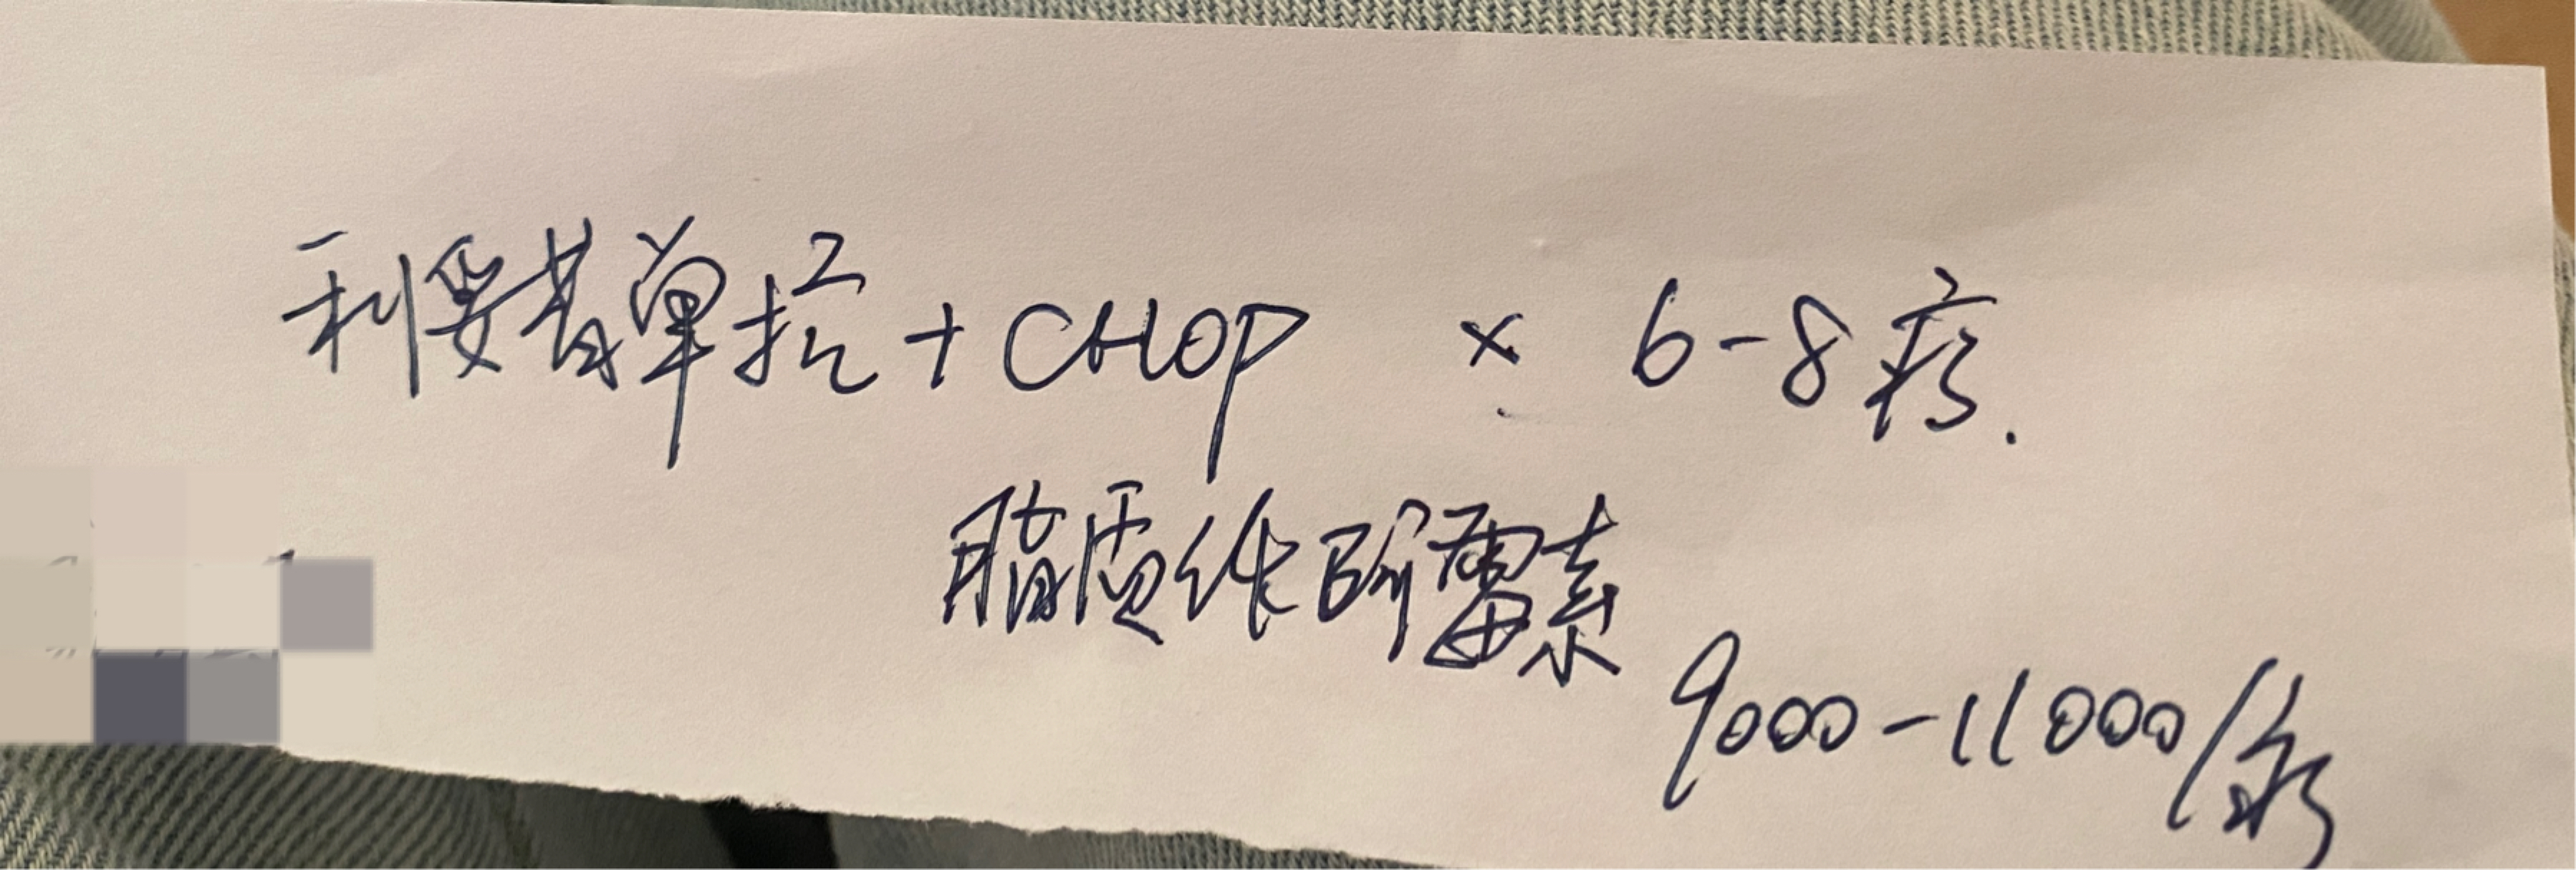 利妥昔单抗+CHOP × 6-8疗.
脂质体阿霉素
9000-11000/疗